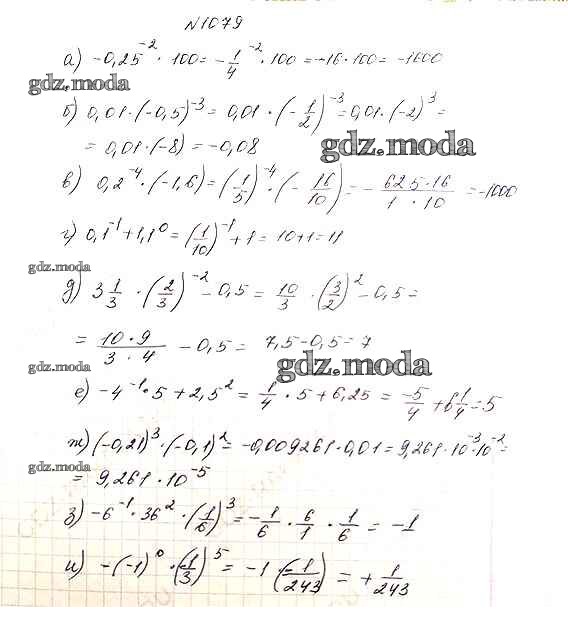 №1079
а) -0,25⁻² · 100 = -1/4⁻² · 100 = -16 · 100 = -1600
gdz.moda
б) 0,01 · (-0,5)⁻³ = 0,01 · (-1/2)⁻³ = 0,01 · (-2)³ =
= 0,01 · (-8) = -0,08
gdz.moda
в) 0,2⁻⁴ · (-1,6) = (1/5)⁻⁴ · (-16/10) = - 625·16/1·10 = -1000
г) 0,1⁻¹ + 1,1⁰ = (1/10)⁻¹ + 1 = 10 + 1 = 11
gdz.moda
д) 3 1/3 · (2/3)⁻² - 0,5 = 10/3 · (3/2)² - 0,5 =
= 10·9/3·4 - 0,5 = 7,5 - 0,5 = 7
gdz.moda
gdz.moda
е) -4⁻¹ · 5 + 2,5² = 1/4 · 5 + 6,25 = -5/4 + 6 1/4 = 5
ж) (-0,21)³ · (-0,1)² = -0,009261 · 0,01 = 9,261 · 10⁻³ · 10⁻² =
gdz.moda
= 9,261 · 10⁻⁵
з) -6⁻¹ · 36² · (1/6)³ = -1/6 · 6/1 · 1/6 = -1
и) -(-1)⁰ · (-1/3)⁵ = -1 (-1/243) = + 1/243